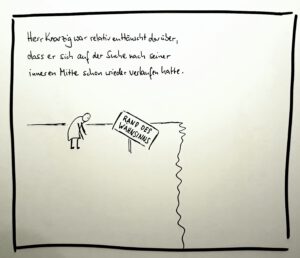 Herr Knarzig war relativ enttäuscht darüber,
dass er sich auf der Suche nach seiner
inneren Mitte schon wieder verlaufen hatte.
RAND DES
WAHNSINNS